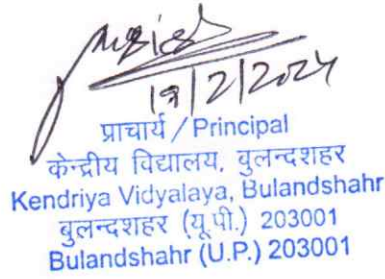 19/2/2024
प्राचार्य / Principal
केन्द्रीय विद्यालय, बुलन्दशहर
Kendriya Vidyalaya, Bulandshahr
बुलन्दशहर (यू.पी.) 203001
Bulandshahr (U.P.) 203001